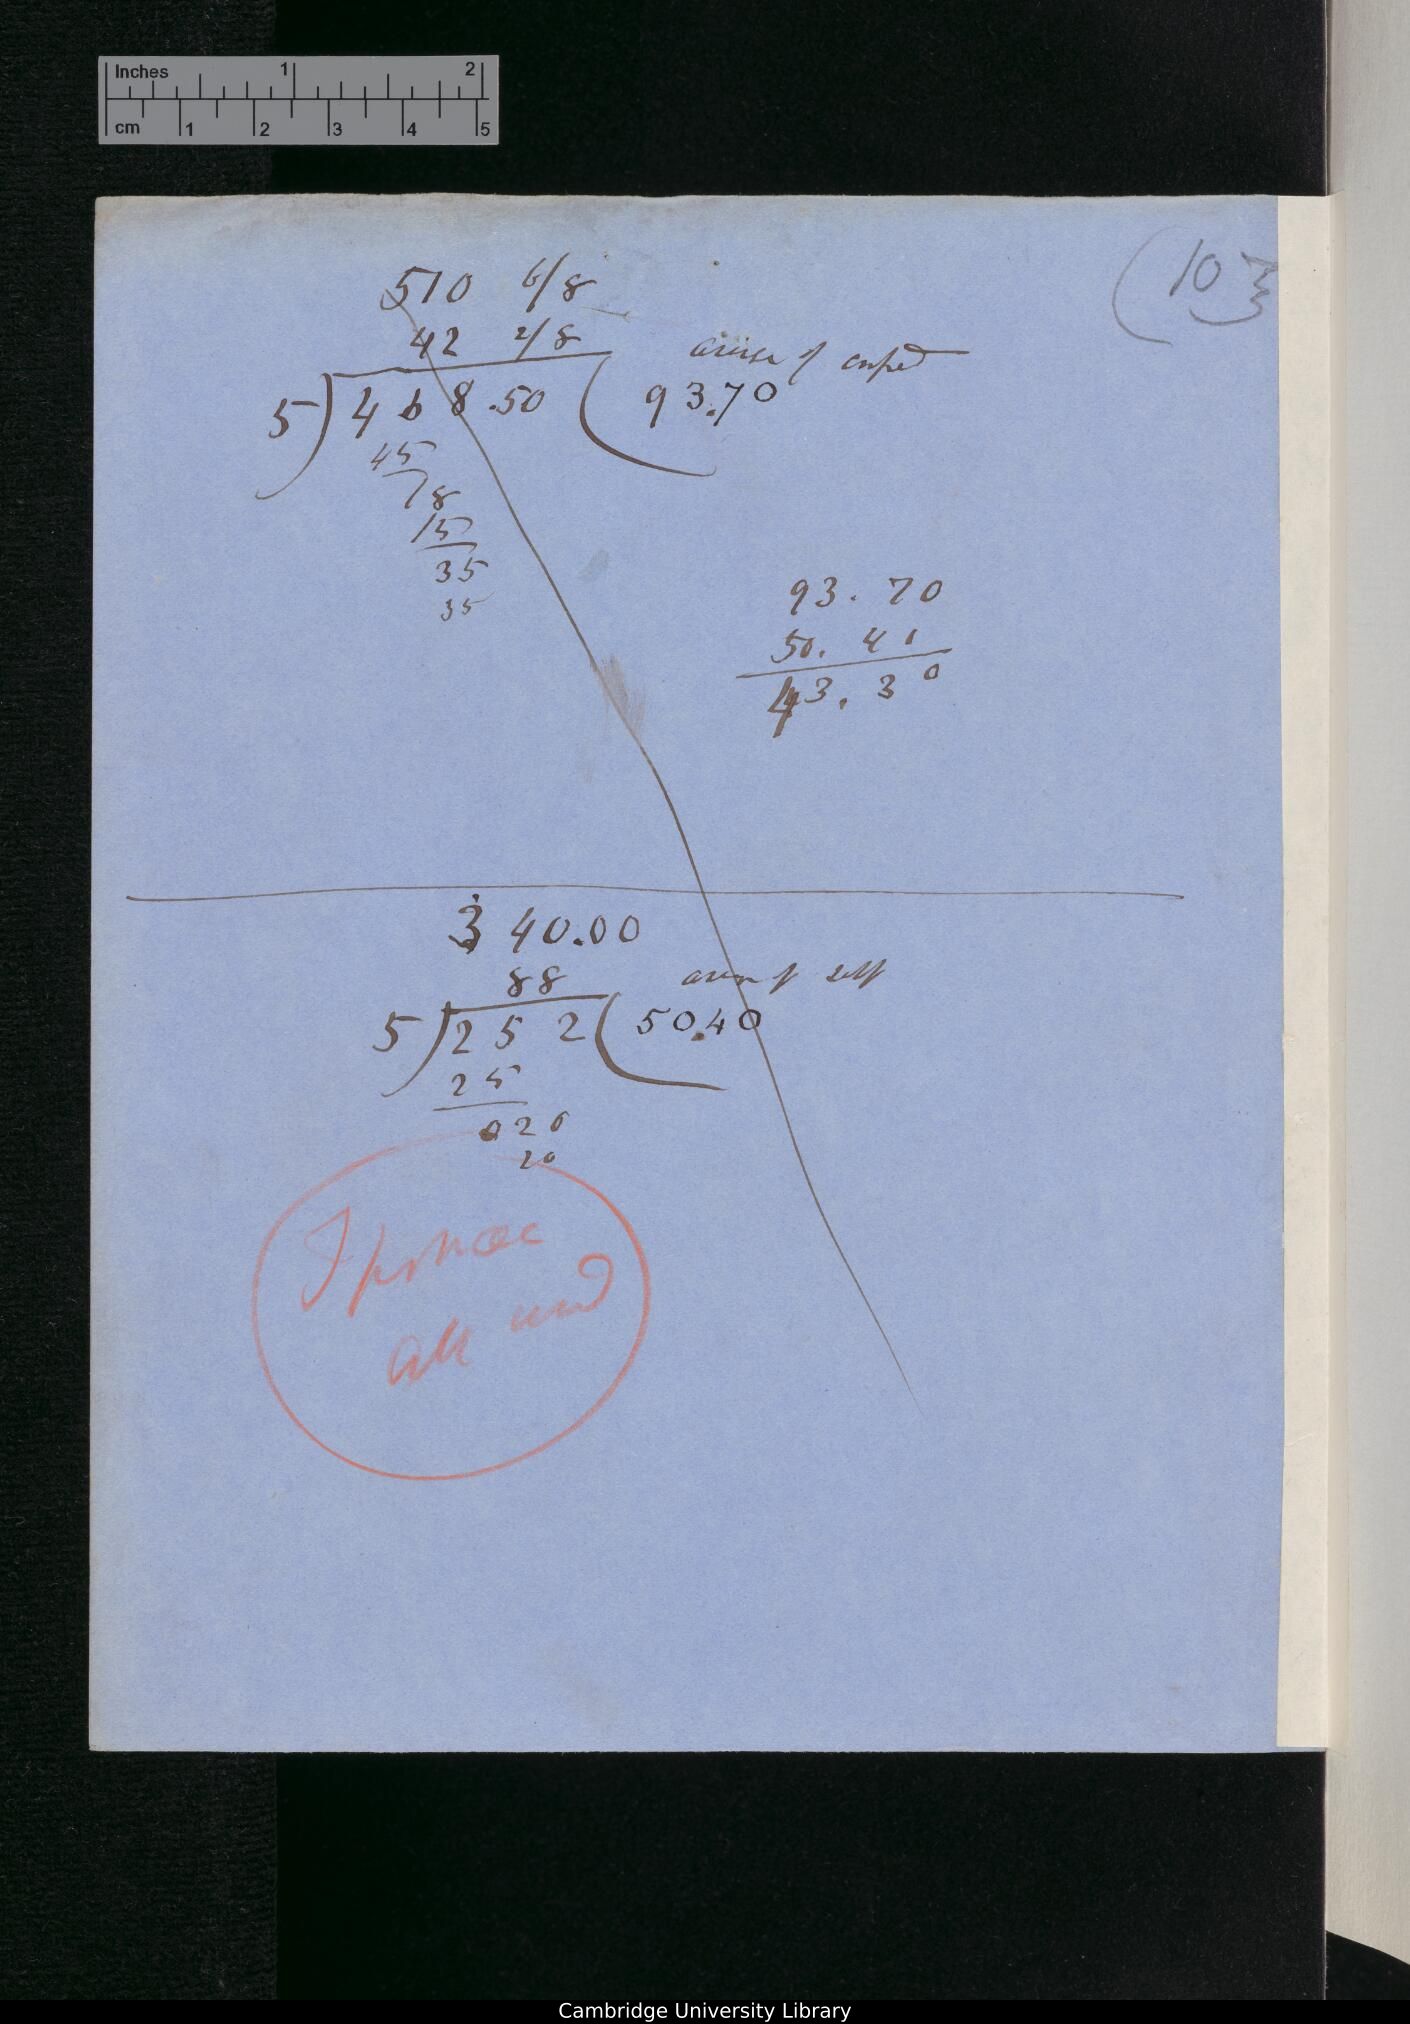 Inches 1 2
cm 1 2 3 4 5
(10
510 6/8
42 2/8
average of crossed
5) 468.50 ( 93.70
45
18
15
35
35
93.70
50.40
43.30
340.00
88
average of self
5) 252 ( 50.40
25
020
20
Ipomoea
all used
Cambridge University Library